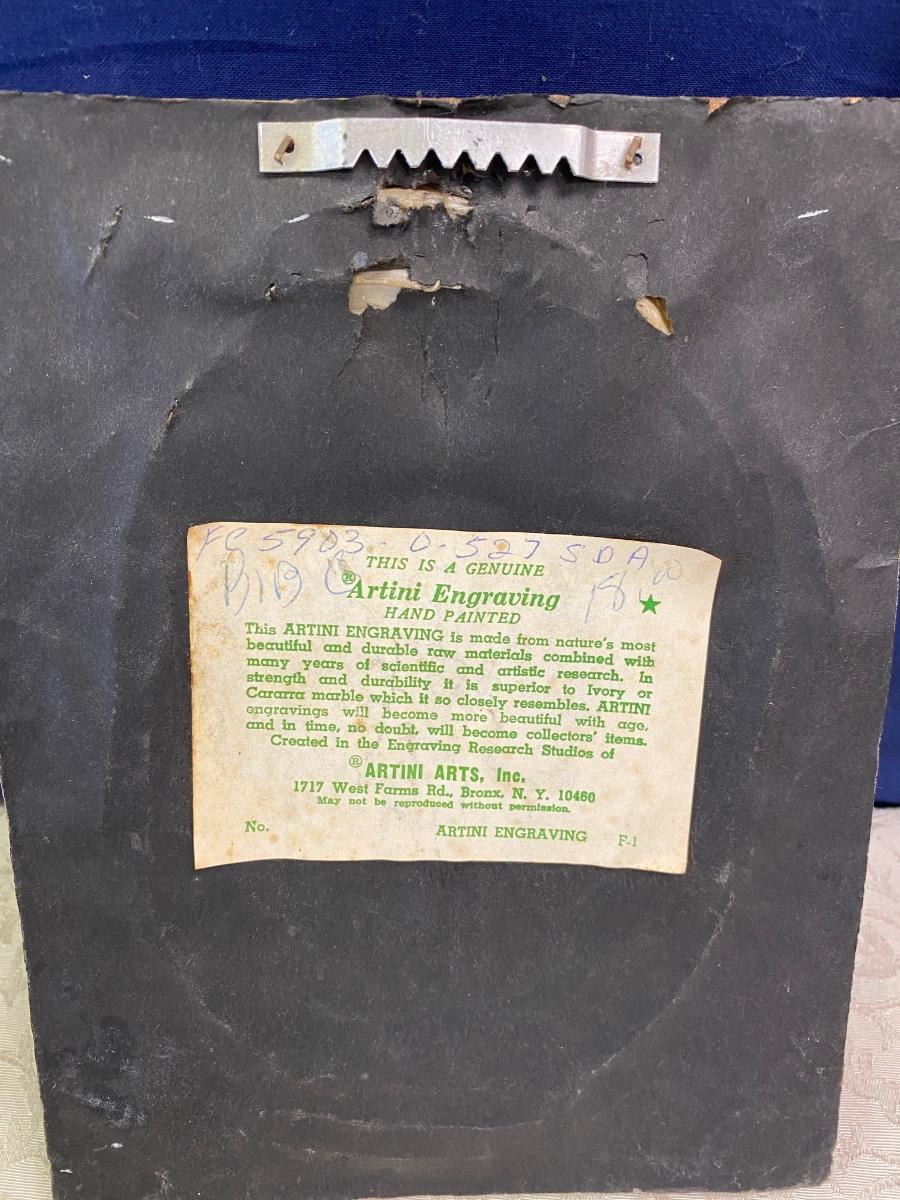 FC 5903 - O - 527 SDA
THIS IS A GENUINE
® Artini Engraving
HAND PAINTED
18.00
This ARTINI ENGRAVING is made from nature's most
beautiful and durable raw materials combined with
many years of scientific and artistic research. In
strength and durability it is superior to Ivory or
Cararra marble which it so closely resembles. ARTINI
engravings will become more beautiful with age,
and in time, no doubt, will become collectors' items.
Created in the Engraving Research Studios of
® ARTINI ARTS, Inc.
1717 West Farms Rd., Bronx, N. Y. 10460
May not be reproduced without permission.
No. ARTINI ENGRAVING F-1